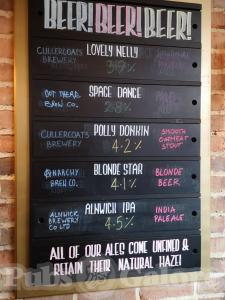 BEER! BEER! BEER!
CULLERCOATS BREWERY
LOVELY NELLY
SPACE DANCE
BREW CO.
2.8%
CULLERCOATS BREWERY
POLLY DONKIN
4.2%
SMOOTH OATMEAL STOUT
ANARCHY BREW CO.
BLONDE STAR
4.1%
BLONDE BEER
ALNWICK BREWERY CO LTD
ALNWICH IPA
4.5%
INDIA PALE ALE
ALL OF OUR ALES COME UNFINED &
RETAIN THEIR NATURAL HAZE!